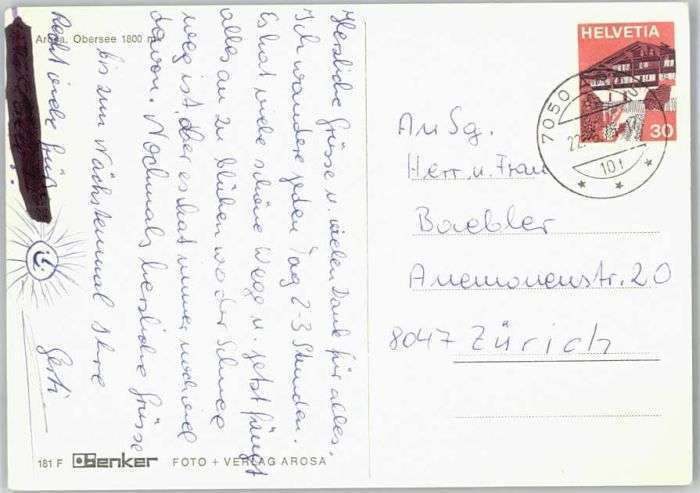 Arosa, Obersee 1800 m
Herzliche Grüsse u. vielen Dank für alles.
Ich wandere jeden Tag 2-3 Stunden.
Es hat viele schöne Wege u. jetzt fängt
alles an zu blühen wo der Schnee
weg ist, aber es hat immer noch viel
davon. Nochmals herzliche Grüsse
bis zum Nächstenmal Ihre
Gerti
Recht viele
HELVETIA
30
7050
22.
101
An Sg.
Herr u. Frau
Baebler
Anemonenstr. 20
8047 Zürich
181 F Benker FOTO + VERLAG AROSA